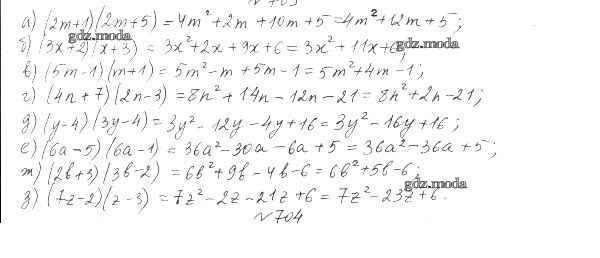 а) (2m+1)(2m+5) = 4m²+2m+10m+5 = 4m²+12m+5;
gdz.moda
б) (3x+2)(x+3) = 3x²+2x+9x+6 = 3x²+11x+6;
gdz.moda
в) (5m-1)(m+1) = 5m²-m+5m-1 = 5m²+4m-1;
г) (4n+7)(2n-3) = 8n²+14n-12n-21 = 8n²+2n-21;
д) (y-4)(3y-4) = 3y²-12y-4y+16 = 3y²-16y+16;
е) (6a-5)(6a-1) = 36a²-30a-6a+5 = 36a²-36a+5;
ж) (2b+3)(3b-2) = 6b²+9b-4b-6 = 6b²+5b-6;
gdz.moda
з) (7z-2)(z-3) = 7z²-2z-21z+6 = 7z²-23z+6.
№704